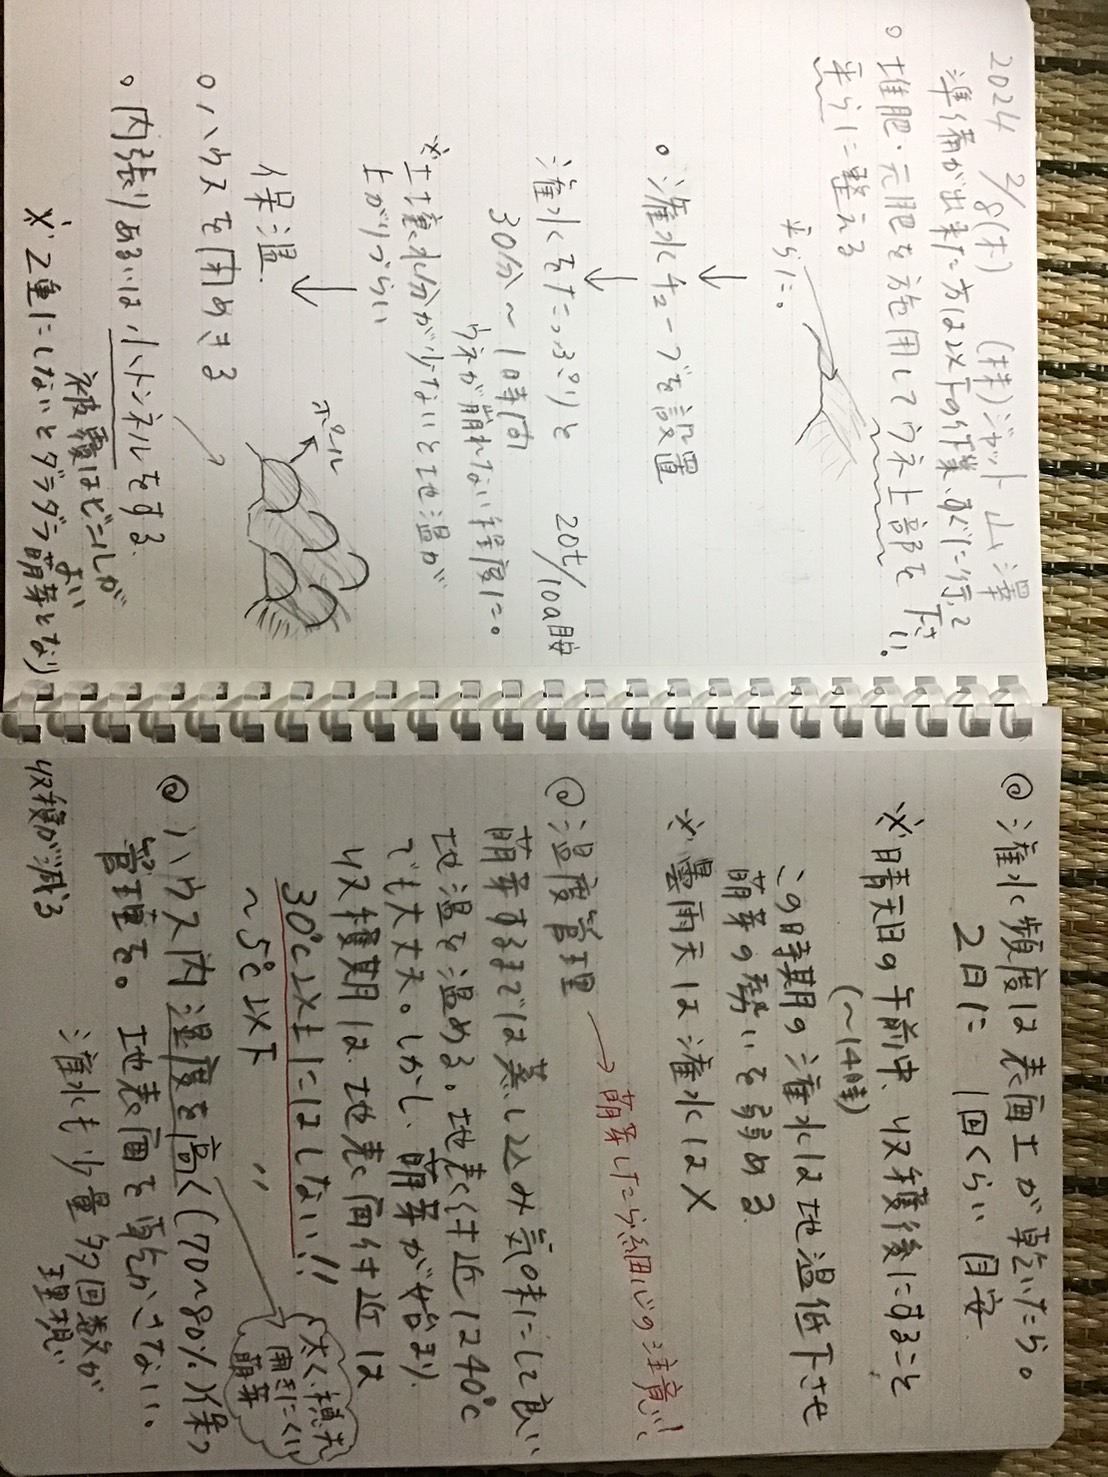 2024 2/8(木) (株)ジャット 山澤
準備が出来た方は以下の作業、すぐに行って下さい。
○ 堆肥・元肥を施用してウネ上部を
平らに整える
平らに。
↓
○ 灌水チューブを設置
↓
灌水をたっぷりと 20t/10a目安
30分〜1時間
ウネが崩れない程度に。
※土壌水分が少ないと地温が
上がりづらい
↓
保温
○ ハウスを閉めきる
ポール
○ 内張りあるいは小トンネルをする
被覆はビニールが
よい
※2重にしないとダラダラ萌芽となり
収穫が減る
◎ 灌水頻度は表面土が乾いたら。
2日に 1回くらい目安
※晴天日の午前中、収穫後にすること
(〜14時)
この時期の灌水は地温低下させ
萌芽の勢いを弱める
※曇雨天は灌水は×
◎温度管理 → 萌芽したら細心の注意!!
萌芽するまでは蒸し込み気味にして良い
地温を温める。地表付近は40℃
でも大丈夫。しかし、萌芽が始まり
収穫期は地表面付近は
30℃以上にはしない!!
〜5℃以下 〃
太く、穂先
開きにくい
萌芽
◎ ハウス内湿度を高く(70〜80%)保つ
管理を。地表面を乾かさない。
灌水も少量多回数が
理想